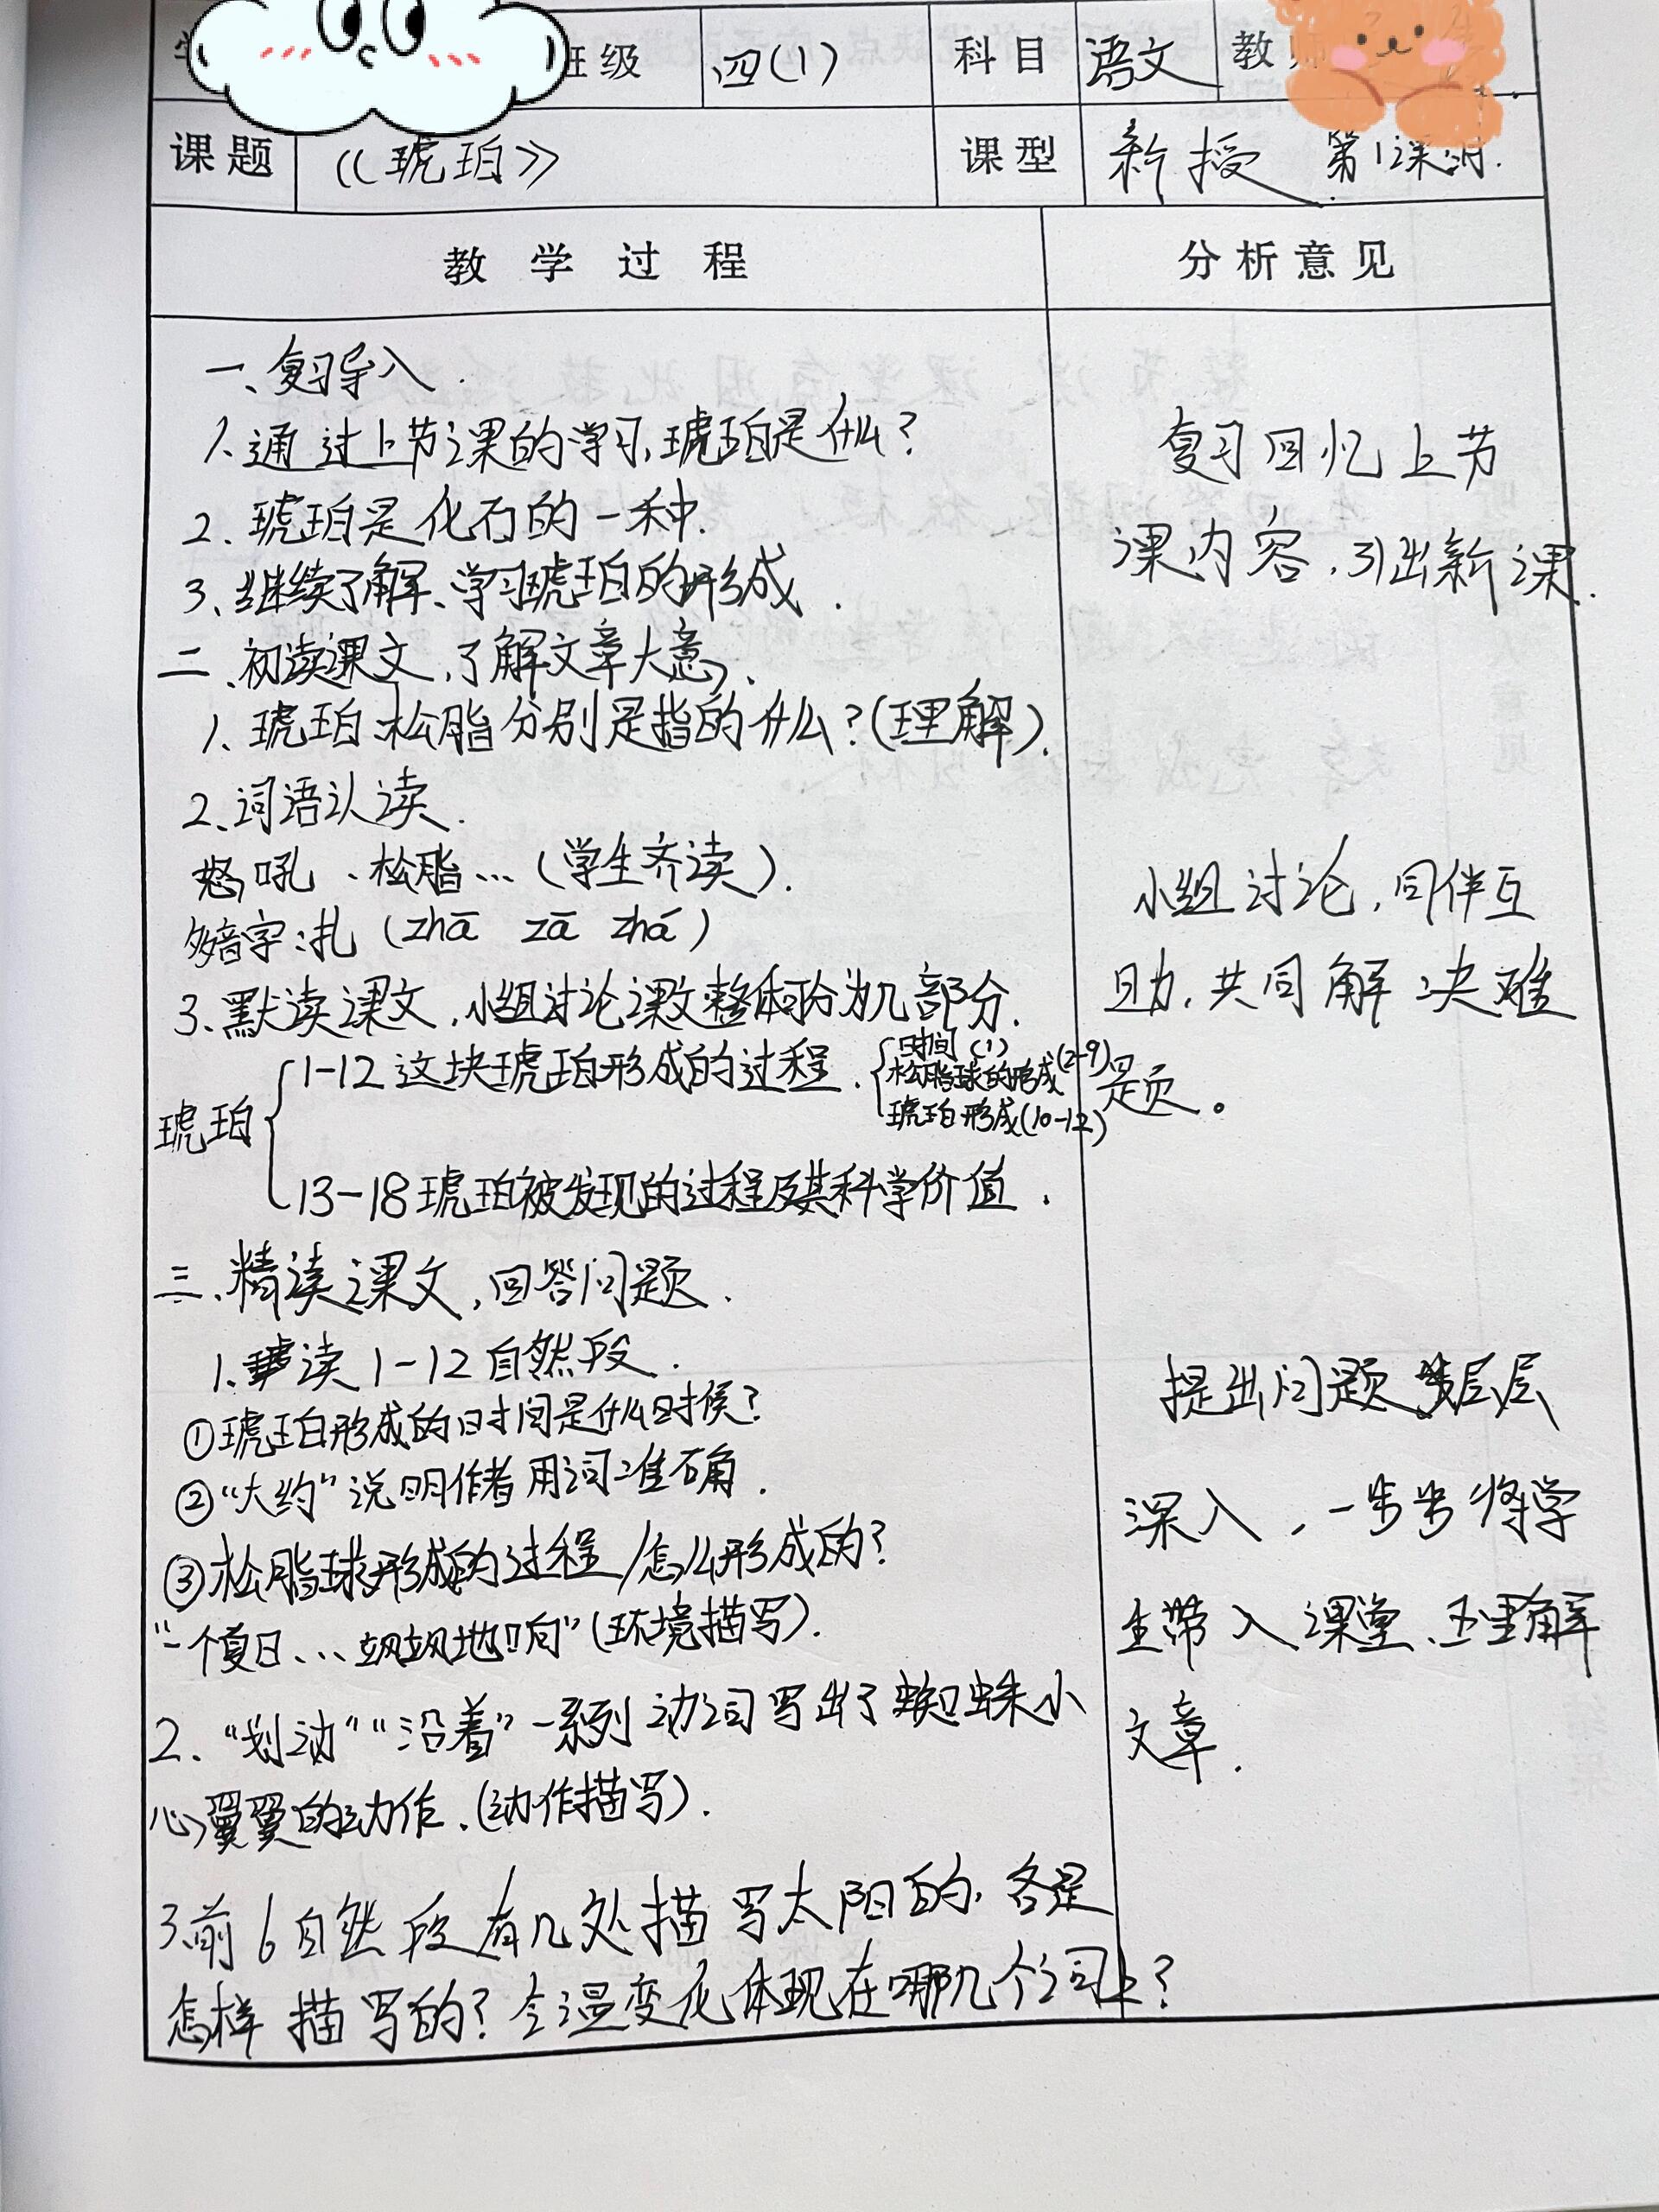 班级 四(1) 科目 语文 教师
课题 《琥珀》 课型 新授 第1课时.
教学过程 分析意见
一、复习导入.
1.通过上节课的学习,琥珀是什么?
2.琥珀是化石的一种.
3、继续了解、学习琥珀的形成.
二、初读课文,了解文章大意,.
1、琥珀、松脂分别是指的什么?(理解).
2、词语认读.
怒吼、松脂…(学生齐读).
多音字:扎(zhā zā zhá)
3、默读课文,小组讨论课文整体可分为几部分.
琥珀
1-12这块琥珀形成的过程.
时间(1)
松脂球的形成(2-9)
琥珀形成(10-12)
13-18琥珀被发现的过程及其科学价值.
三、精读课文,回答问题.
1.读1-12自然段.
①琥珀形成的时间是什么时候?
②“大约”说明作者用词准确.
③松脂球形成的过程/怎么形成的?
“一个夏日…飒飒地响”(环境描写).
2、“划动”“沿着”一系列动词写出了蜘蛛小
心翼翼的动作.(动作描写).
3.前6自然段有几处描写太阳的,各是
怎样描写的?气温变化体现在哪几个词上?
复习回忆上节
课内容,引出新课.
小组讨论,同伴互
助,共同解决难
题。
提出问题层层
深入,一步步将学
生带入课堂、理解
文章.